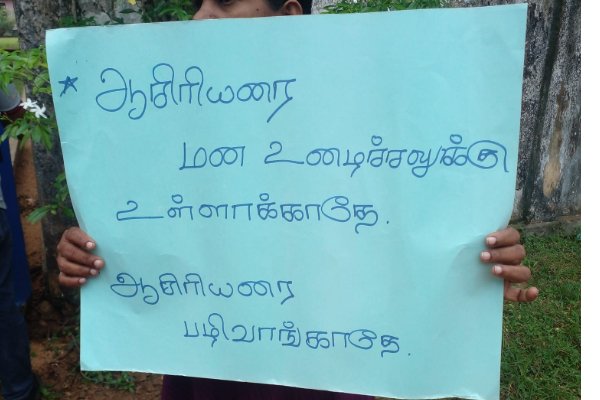 * ஆசிரியரை
மன உடைச்சலுக்கு
உள்ளாக்காதே.
ஆசிரியரை
பழிவாங்காதே.